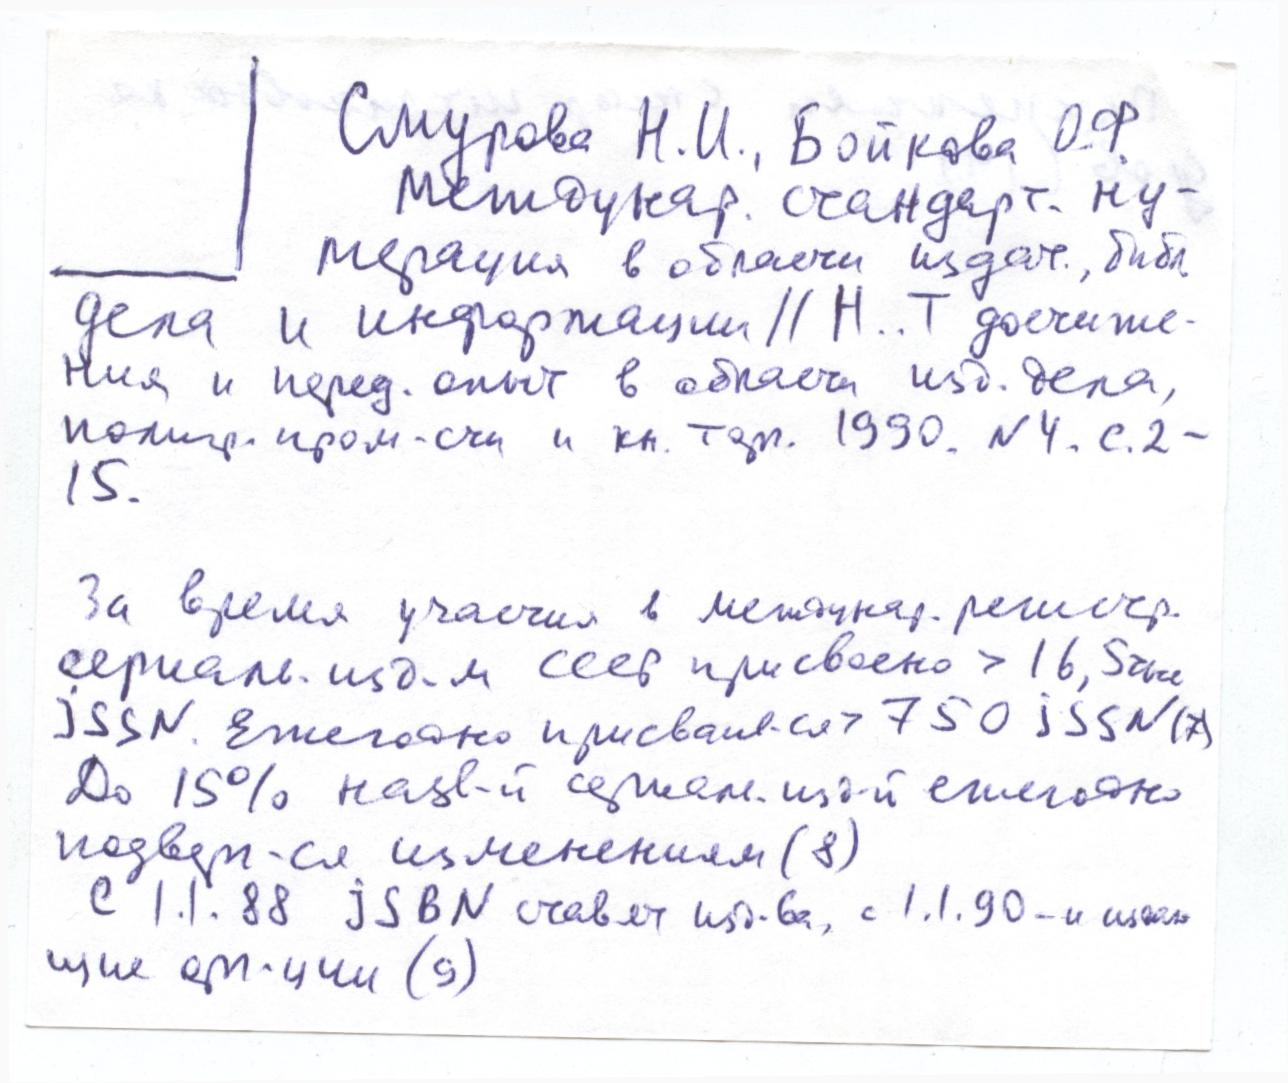 Смурова Н.И., Бойкова О.Ф.
Междунар. стандарт. ну-
мерация в области издат., библ.
дела и информации // Н..Т достиже-
ния и перед. опыт в области изд. дела,
полигр. пром-сти и кн. торг. 1990. N4. С.2-
15.
За время участия в междунар. регистр.
сериальн. изд-й СССР присвоено > 16,5 тыс
jSSN. Ежегодно присваив-ся > 750 jSSN (7)
До 15% назв-й сериальн. изд-й ежегодно
подверг-ся изменениям (8)
С 1.1.88 jSBN ставят изд-ва, с 1.1.90 - и издаю
щие орг-ции (9)